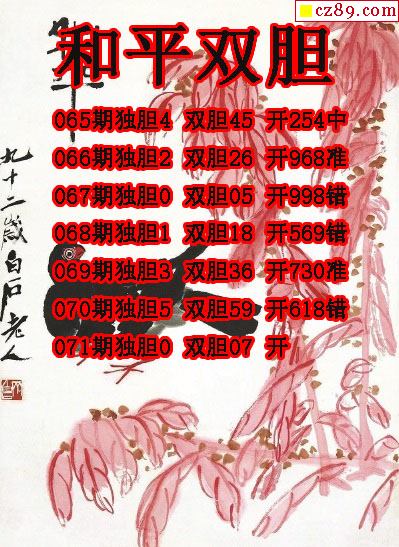 cz89.com
和平双胆
065期独胆4 双胆45 开254中
066期独胆2 双胆26 开968准
067期独胆0 双胆05 开998错
068期独胆1 双胆18 开569错
069期独胆3 双胆36 开730准
070期独胆5 双胆59 开618错
071期独胆0 双胆07 开
九十二岁白石老人